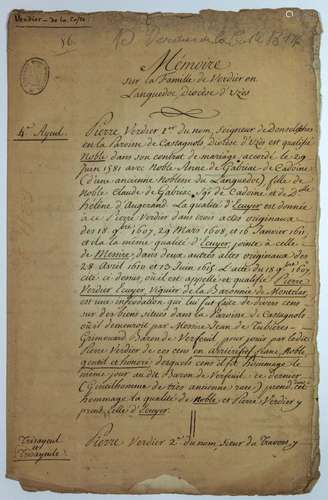 Verdier - de la Coste
86.
Mémoire
sur la Famille de Verdier en
Languedoc, Diocèse d'Uzès
4e. Ayeul
Pierre Verdier 1er. du nom, Seigneur de
en la Paroisse de Castagnols Diocèse d'Uzès est qualifié
Noble dans son contrat de mariage, accordé le 29
Juin 1581 avec Noble Anne de Gabriac de Cadoine
(d'une ancienne Noblesse de Languedoc) fille de
Noble Claude de Gabriac Sgr. de Cadoine et de Dlle
Hélène d'Augerand La qualité d'Ecuyer est donnée
à ce Pierre Verdier dans trois actes originaux
des 18 9bre 1607, 29 Mars 1608, et 16 Janvier 1611
et la même qualité d'Ecuyer jointe à celle
de Messire, dans deux autres actes originaux des
28 avril 1610 et 13 Juin 1615. L'acte du 18 9bre 1607,
cité ci dessus, où il est appellé et qualifié Pierre
Verdier Ecuyer, Viguier de la Baronnie de Montclar
est une infeodation qui lui fut faite de divers cens
sur des biens situés dans la Paroisse de Castagnols
où il demeuroit par Messire Jean de Tubières-
Grimouard Baron de Verfeuil pour jouir par ledit
Pierre Verdier de ces cens en arrierefief franc, Noble
gentil et honoré desquels cens il fit hommage le
même jour au dit Baron de Verfeuil ce dernier
(Gentilhomme de très ancienne race) prend cet
hommage la qualité de Noble, et Pierre Verdier y
prend celle d'Ecuyer.
Trisayeul
et
Trisayeule
Pierre Verdier 2e. du nom, sieur du Travers, y